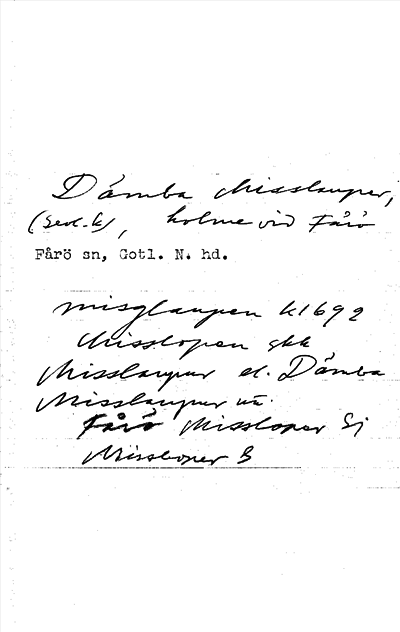 Dämba Misslauper,
(Geol.k), holme vid Fårö
Fårö sn, Gotl. N. hd.
Misglaupen k1692
Misslopen gkk
Misslaupur el. Dämba
Misslaupur
Fårö Missloper Sj
Missloper B